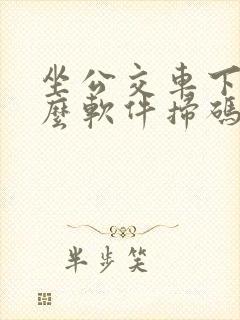 坐公交車下
麼軟件掃碼
半步笑